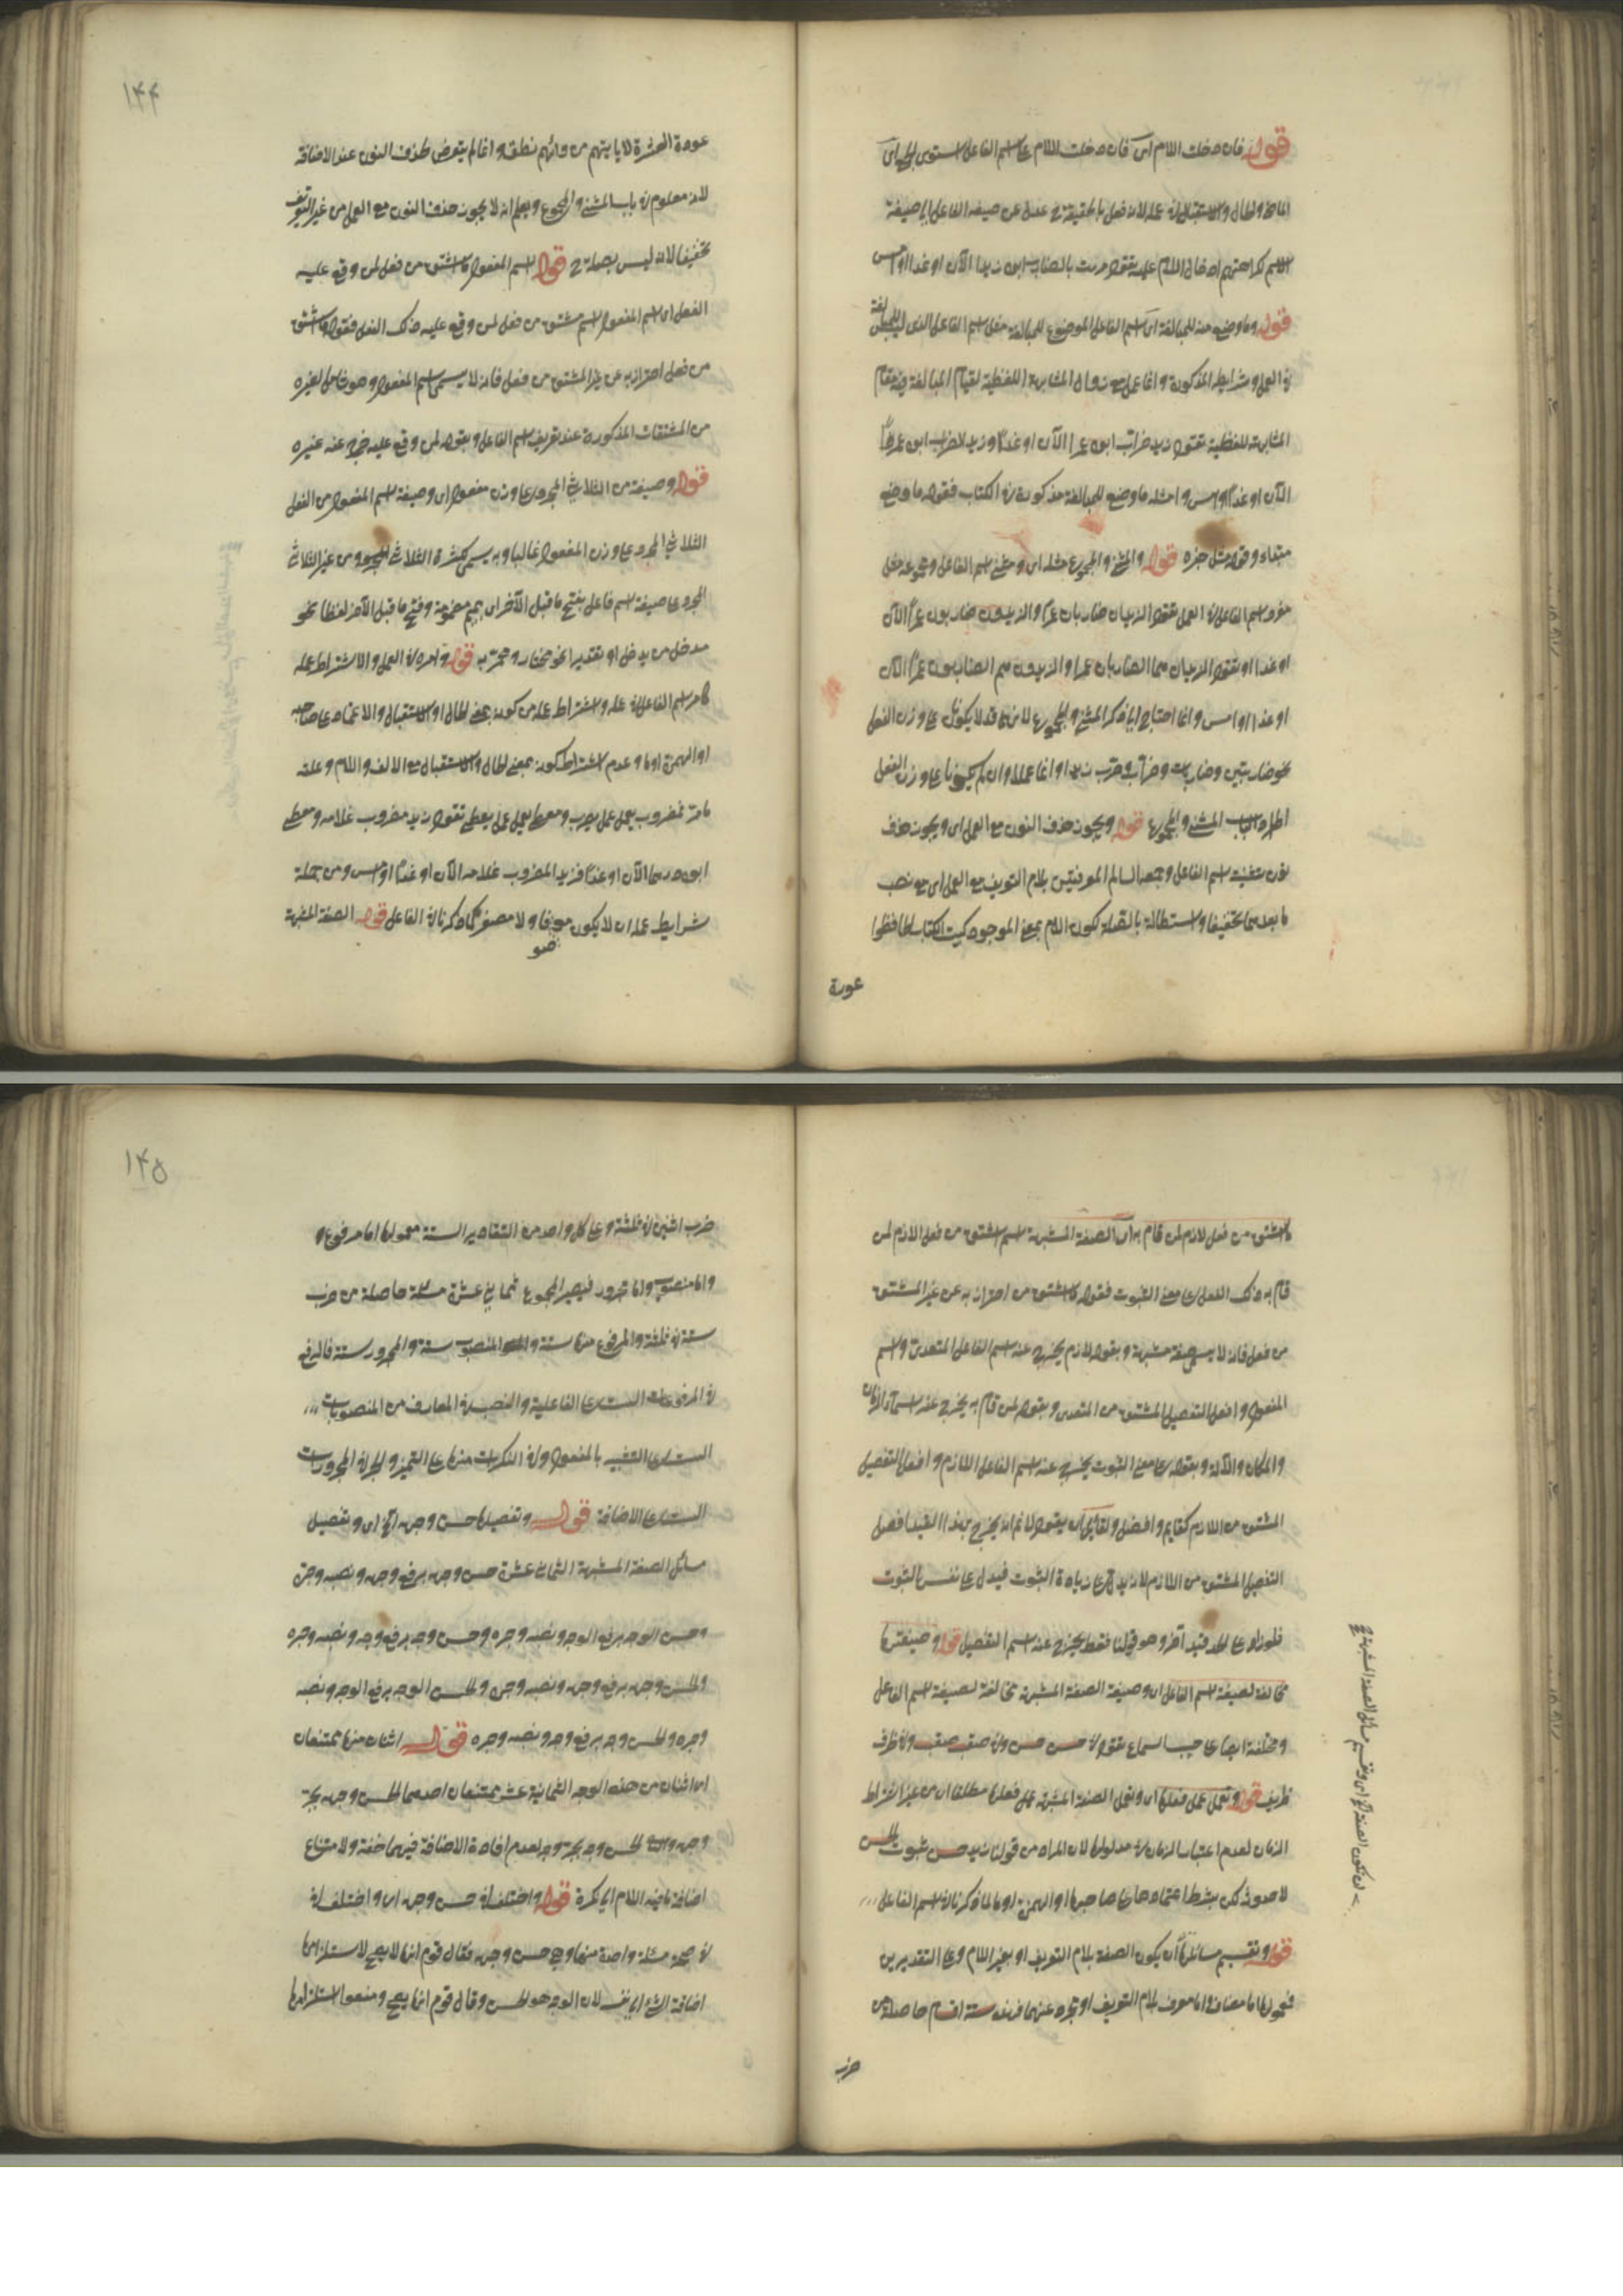 قوله فان دخلت اللام اى فان دخلت اللام على اسم الفاعل استوى الجميع اى
الماضى والحال والاستقبال فى عمله لانه فعل بالحقيقة ح عدل عن صيغة الفاعل الى صيغة
الاسم لكراهتهم ادخال اللام عليه تقول مررت بالضارب ابوه زيدا الآن او غدا او امس
قوله وما وضع منه للمبالغة اى اسم الفاعل الموضوع للمبالغة مثل اسم الفاعل الذى ليس للمبالغة
فى العمل وشرايطه المذكورة وانما عمل مع زوال المشابهة اللفظية لقيام المبالغة فيه مقام
المشابهة اللفظية تقول زيد ضراب ابوه عمرا الآن او غدا وزيد الضراب ابوه عمرا
الآن او غدا او امس وامثلة ما وضع للمبالغة مذكورة فى الكتاب فقوله ما وضع
مبتداء وقوله مثله خبره قوله والمثنى والمجموع مثله اى ومثنى اسم الفاعل ومجموعه مثل
مفرد اسم الفاعل فى العمل تقول الزيدان ضاربان عمرا والزيدون ضاربون عمرا الآن
او غدا او تقول الزيدان هما الضاربان عمرا والزيدون هم الضاربون عمرا الآن
او غدا او امس وانما احتاج الى ذكر المثنى والمجموع لانهما قد لا يكونان على وزن الفعل
نحو ضاربتين وضاربات وضراب وضرب زيدا وانما عملا وان لم يكونا على وزن الفعل
اطرادا لباب المثنى والمجموع قوله ويجوز حذف النون مع العمل اى ويجوز حذف
نون تثنية اسم الفاعل وجمعه السالم المعرفتين بلام التعريف مع العمل اى مع نصب
ما بعدهما تخفيفا واستطالة بالصلة لكون اللام بمعنى الموصول كبيت الكتاب الحافظوا
عورة
١٤٤
عورة العشيرة لا ياتيهم من ورائهم نطف وانما لم يتعرض لحذف النون عند الاضافة
لانه معلوم فى باب المثنى والمجموع ويعلم انه لا يجوز حذف النون مع العمل من غير التعريف
تخفيفا لانه ليس بصلة ح قوله اسم المفعول ما اشتق من فعل لمن وقع عليه
الفعل اى اسم المفعول اسم مشتق من فعل لمن وقع عليه ذلك الفعل فقوله ما اشتق
من فعل احتراز به عن غير المشتق من فعل فانه لا يسمى اسم المفعول وهو شامل لغيره
من المشتقات المذكورة عند تعريف اسم الفاعل وبقوله لمن وقع عليه خرج عنه غيره
قوله وصيغته من الثلاثى المجرد على وزن مفعول اى وصيغة اسم المفعول من الفعل
الثلاثى المجرد على وزن المفعول غالبا وبه يسمى لكثرة الثلاثى المجرد ومن غير الثلاثى
المجرد على صيغة اسم فاعل بفتح ما قبل الآخر اى بميم مضمومة وفتح ما قبل الآخر لفظا نحو
مدخل من يدخل او تقديرا نحو مختار ومحمر به قوله وامره فى العمل والاشتراط عمله
كامر اسم الفاعل فى عمله واشتراط عمله من كونه بمعنى الحال او الاستقبال والاعتماد على صاحبه
او الهمزة او ما وعدم اشتراط كونه بمعنى الحال والاستقبال مع الالف واللام وعلته
ما مر فمضروب يعمل عمل يضرب ومعطى يعمل عمل يعطى تقول زيد مضروب غلامه ومعطى
ابوه درهما الآن او غدا وزيد المضروب غلامه الآن او غدا او امس ومن جملة
شرايط عمله ان لا يكون موصوفا ولا مصغرا كما ذكرنا فى الفاعل قوله الصفة المشبهة
ما اشتق من فعل لازم لمن قام به اى الصفة المشبهة اسم اشتق من فعل لازم لمن
قام به ذلك الفعل على معنى الثبوت فقوله ما اشتق من احتراز به عن غير المشتق
من فعل فانه لا يسمى صفة مشبهة وبقوله لازم يخرج عنه اسم الفاعل المتعدى واسم
المفعول وافعل التفضيل المشتق من المتعدى وبقوله لمن قام به يخرج عنه اسماء الزمان
والمكان والآلة وبقوله على معنى الثبوت يخرج عنه اسم الفاعل اللازم وافعل التفضيل
المشتق من اللازم كقايم وافضل ولقايل ان يقول لا نم انه يخرج بهذا القيد افعل
التفضيل المشتق من اللازم لانه يدل على زيادة الثبوت فيدل على نفس الثبوت
فلو زاد على الحد قيد آخر وهو قولنا فقط يخرج عنه اسم التفضيل قوله وصيغتها
مخالفة لصيغة اسم الفاعل اى وصيغة الصفة المشبهة مخالفة لصيغة اسم الفاعل
ومختلفة ايضا على حسب السماع تقول فى حسن حسن وفى صعب صعب وفى ظرف
ظريف قوله وتعمل عمل فعلها اى وتعمل الصفة المشبهة عمل فعلها مطلقا اى من غير اشتراط
الزمان لعدم اعتبار الزمان فى مدلولها لان المراد من قولنا زيد حسن ثبوت الحسن
لا حدوثه لكن بشرط اعتمادها على صاحبها او الهمزة او ما لما ذكرنا فى اسم الفاعل
قوله وتقسيم مسائلها ان يكون الصفة بلام التعريف او بغير اللام وعلى التقديرين
فمعمولها اما مضاف واما معرف بلام التعريف او مجرد عنهما فهذه ستة اقسام حاصلة من
ضرب
١٤٥
ضرب اثنين فى ثلثة وعلى كل واحد من التقادير الستة معمولها اما مرفوع و
واما منصوب واما مجرور فيصير المجموع ثمانى عشرة مسئلة حاصلة من ضرب
ستة فى ثلثة والمرفوع منها ستة والمنصوب ستة والمجرور ستة فالرفع
فى المرفوعات الست على الفاعلية والنصب فى المعارف من المنصوبات
الست على التشبيه بالمفعول وفى النكرات منها على التمييز والجر فى المجرورات
الست على الاضافة قوله وتفصيلها حسن وجهه الخ اى وتفصيل
مسائل الصفة المشبهة الثمانى عشرة حسن وجهه برفع وجهه ونصبه وجره
وحسن الوجه برفع الوجه ونصبه وجره وحسن وجه برفع وجه ونصبه وجره
والحسن وجهه برفع وجهه ونصبه وجره والحسن الوجه برفع الوجه ونصبه
وجره والحسن وجه برفع وجه ونصبه وجره قوله اثنان منها ممتنعان
اى اثنان من هذه الوجوه الثمانية عشر ممتنعان احدهما الحسن وجهه بجر
وجهه والحسن وجه بجر وجه لعدم افادة الاضافة فيهما خفة ولامتناع
اضافة ما فيه اللام الى نكرة قوله واختلف فى حسن وجهه اى واختلف فى
فى صحة مسئلة واحدة منها وهى حسن وجهه فقال قوم انها لا يصح لاستلزامها
اضافة الشئ الى نفسه لان الوجه هو الحسن وقال قوم انها يصح ومنعوا استلزامها